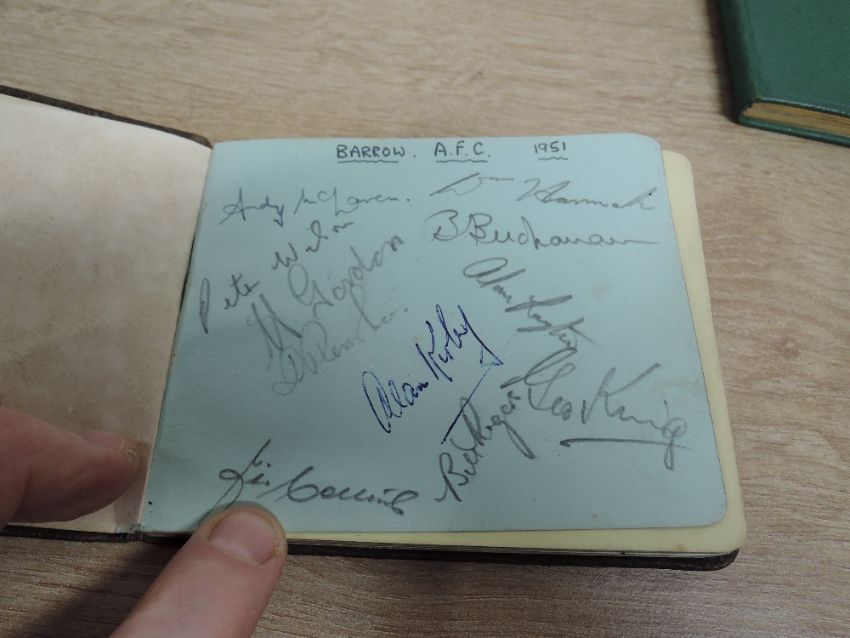 BARROW. A.F.C. 1951
Andy McLaren.
Hannah
Pete Wilson
B Buchanan
Gordon
Alan
Alan Kirby
Geo King
Bill Rogers
Jim Collins